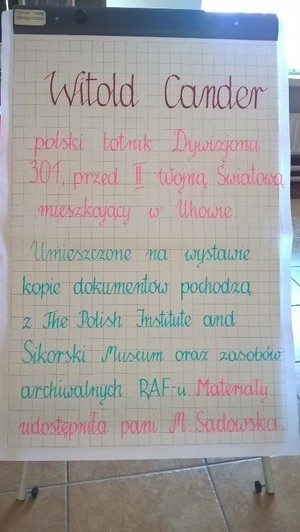 Witold Cander
polski lotnik Dywizjonu
301, przed II Wojną Światową
mieszkający w Uhowie.
Umieszczone na wystawie
kopie dokumentów pochodzą
z The Polish Institute and
Sikorski Museum oraz zasobów
archiwalnych RAF-u. Materiały
udostępniła pani M. Sadowska